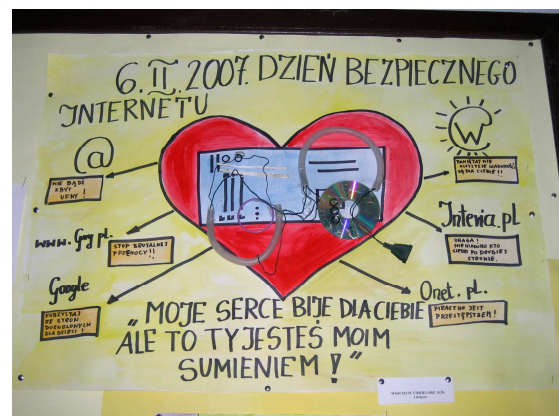 6.II.2007. DZIEŃ BEZPIECZNEGO
INTERNETU
@
NIE BĄDŹ
ZBYT
UFNY!
www.Gry.pl.
STOP BRUTALNEJ
PRZEMOCY!!
Google
KORZYSTAJ
ZE STRON
DOZWOLONYCH
DLA DZIECI!
W
PAMIĘTAJ NIE
WSZYSTKIE WIADOMOŚCI
SĄ DLA CIEBIE!!
Interia.pl
UWAGA!
NIE WIADOMO KTO
SIEDZI PO DRUGIEJ
STRONIE.
Onet.pl.
PIRACTWO JEST
PRZESTĘPSTWEM!
„MOJE SERCE BIJE DLA CIEBIE
ALE TO TY JESTEŚ MOIM
SUMIENIEM!”